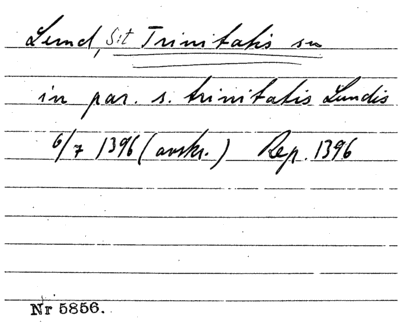 Lund, S:t Trinitatis sn
in par. s. trinitatis Lundis
6/7 1396 (avskr.) Rep. 1396
Nr 5856.